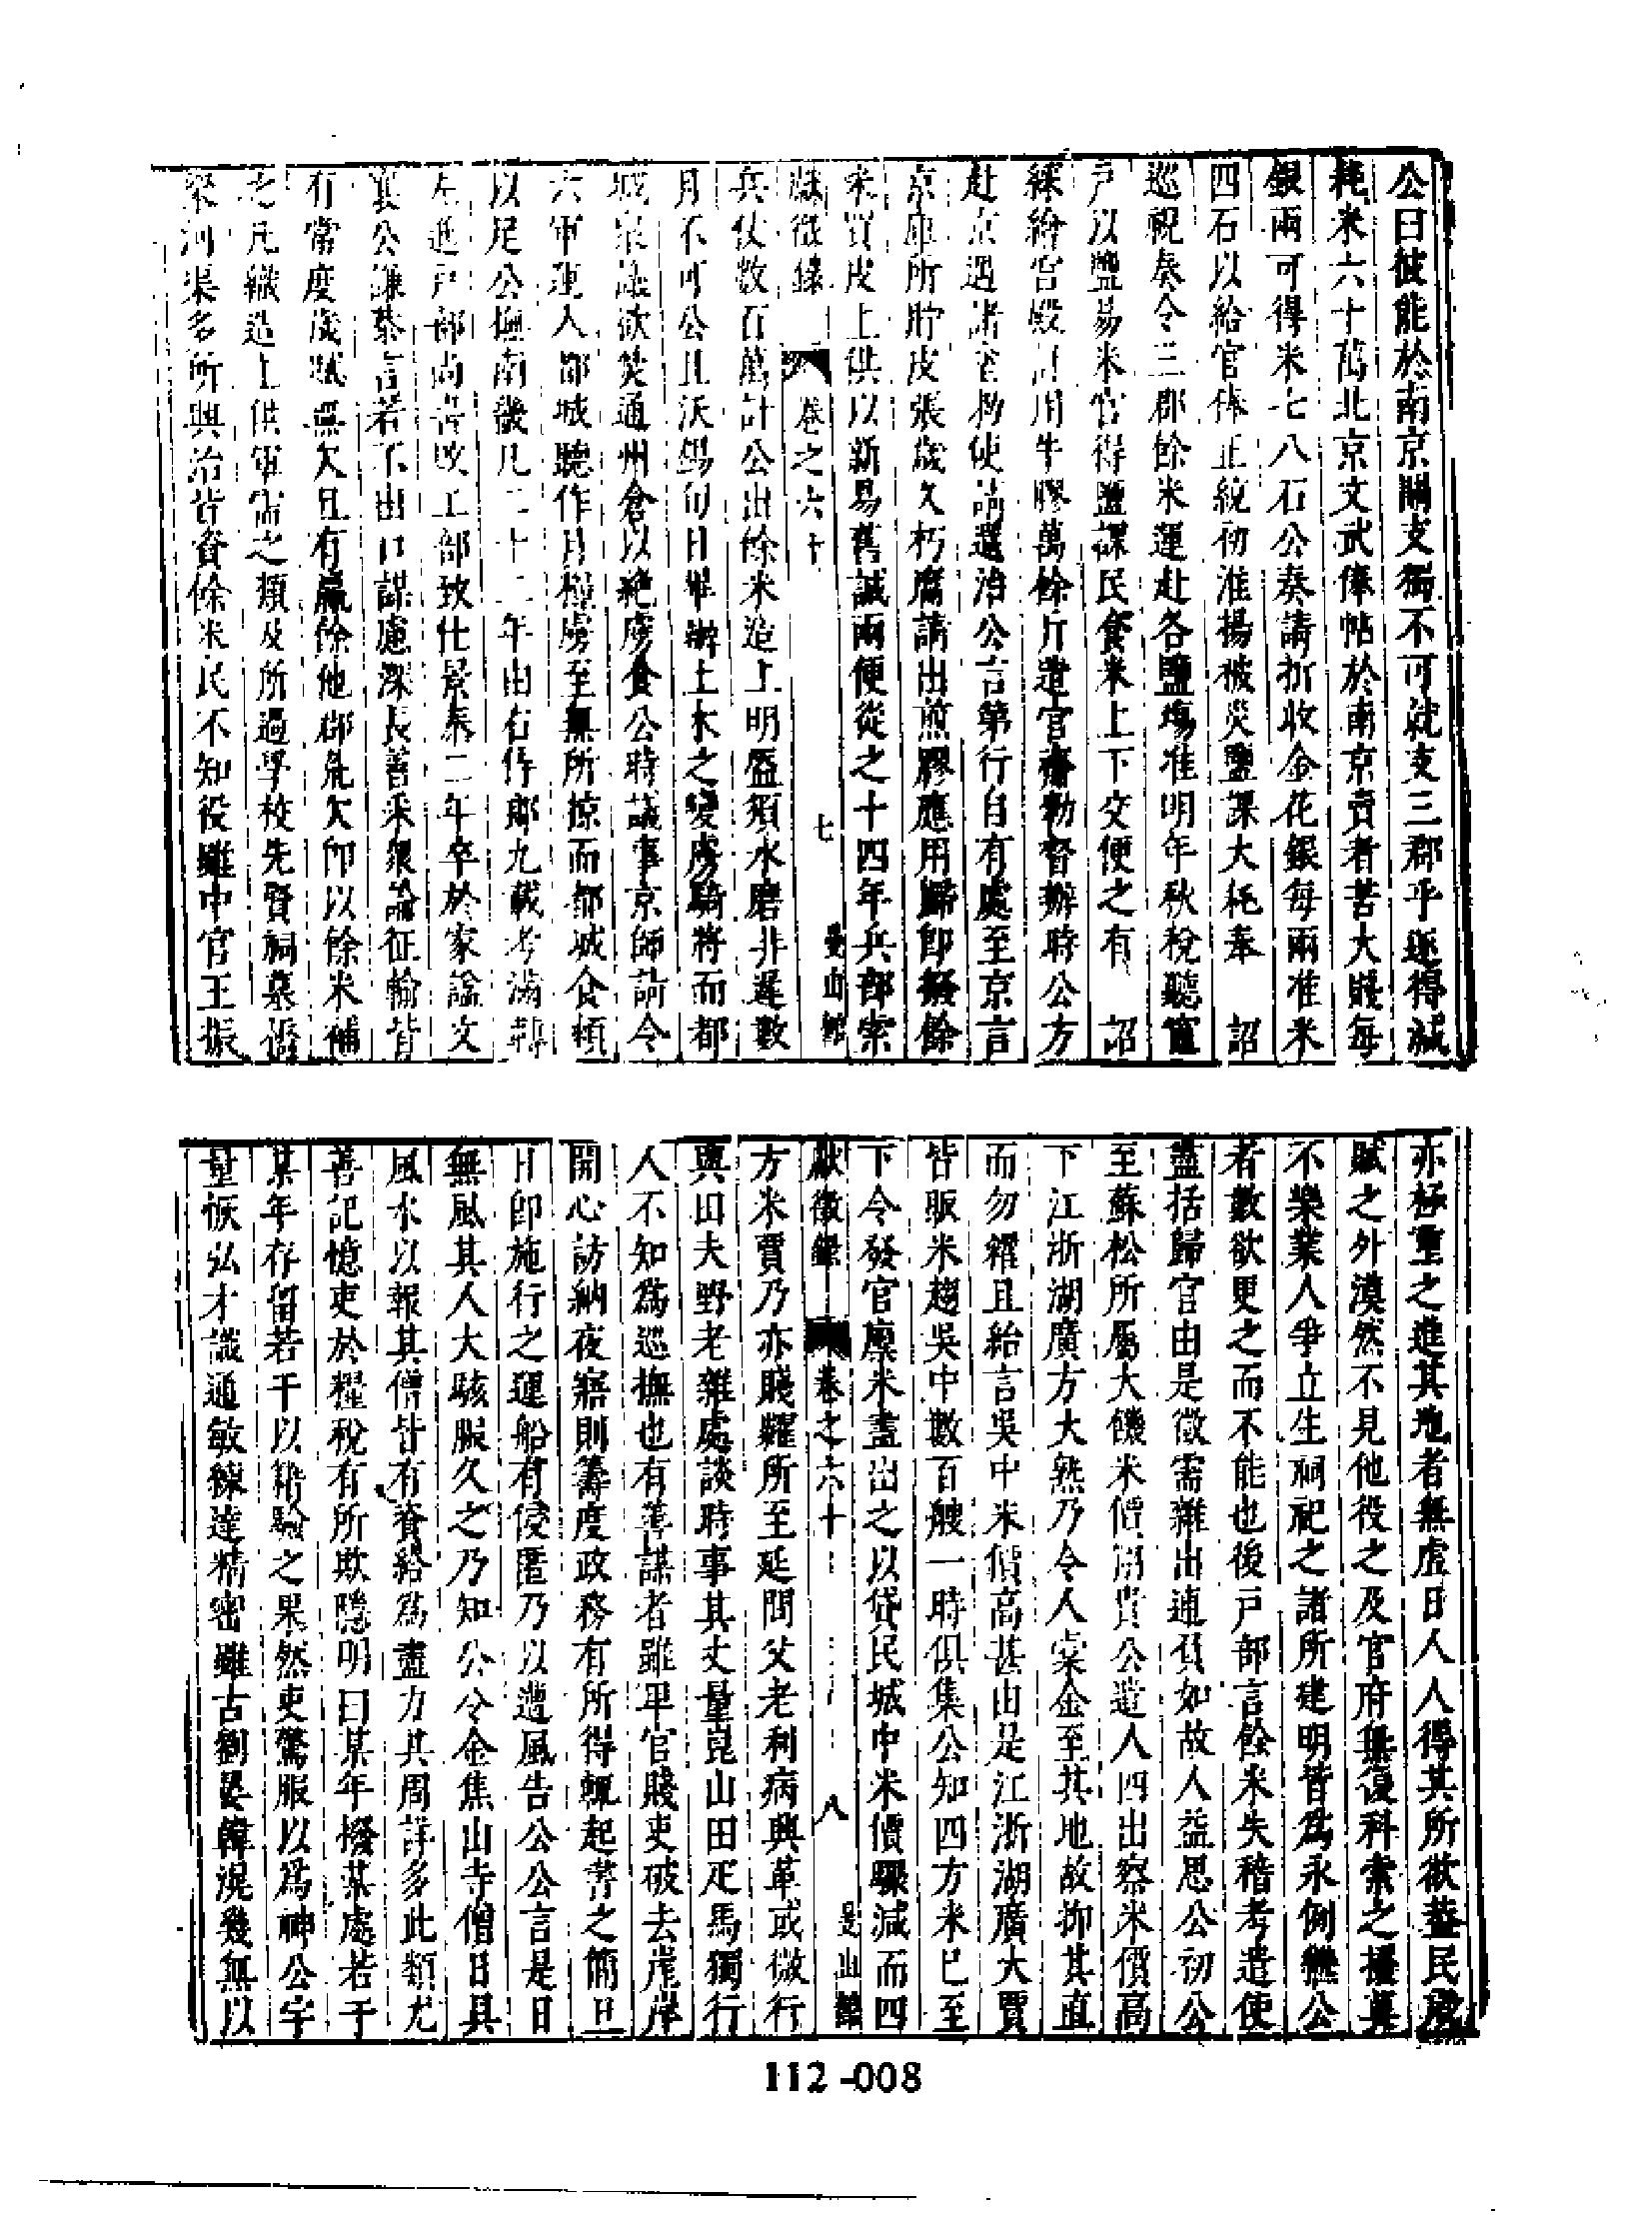 公曰彼能於南京關支獨不可就支三郡乎遂得減
耗米六十萬北京文武俸帖於南京賣者苦大賤每
銀兩可得米七八石公奏請折收金花銀每兩准米
四石以給官俸正統初淮揚被災鹽課大耗奉　詔
巡視奏令三郡餘米運赴各鹽塲准明年秋稅聽竈
戶以鹽易米官得鹽課民食米上下交便之有　詔
綵繪宮殿計用牛膠萬餘斤遣官齎勑督辦時公方
赴京遇諸塗勑使請還治公言第行自有處至京言
京庫所貯皮張歲久朽腐請出煎膠應用歸卽撥餘
米買皮上供以新易舊誠兩便從之十四年兵部索
獻徵錄　卷之六十　七　曼山館
兵仗數百萬計公出餘米造上明盔須水磨非遲數
月不可公且沃錫旬日畢辦土木之變虜騎將而都
城衆議欲焚通州倉以絶虜食公時議事京師請令
六軍運入都城聽作月糧虜至無所掠而都城食頓
以足公撫南畿凡二十二年由右侍郎九載考滿轉
左進戶部尚書改工部致仕景泰二年卒於家謚文
襄公謙恭言若不出口謀慮深長善采衆論征輸皆
有常度歲賦無欠且有贏餘他郡有欠卽以餘米補
之凡織造上供軍需之類及所過學校先賢祠墓橋
梁河渠多所興治皆資餘米民不知役雖中官王振
亦極重之進其地者無虛日人人得其所欲葢民
賦之外漠然不見他役之及官府無復科索之擾莫
不樂業人爭立生祠祀之諸所建明皆爲永例繼公
者數欲更之而不能也後戶部言餘米失稽考遣使
盡括歸官由是徵需雜出逋負如故人益思公初公
至蘇松所屬大饑米價涌貴公遣人四出察米價高
下江浙湖廣方大熟乃令人橐金至其地故抑其直
而勿糴且紿言吳中米價高甚由是江浙湖廣大賈
皆販米趨吳中數百艘一時俱集公知四方米已至
下令發官廪米盡出之以貸民城中米價驟減而四
獻徵錄　卷之六十　八　曼山館
方米賈乃亦賤糶所至延問父老利病興革或微行
與田夫野老雜處談時事其丈量崑山田疋馬獨行
人不知爲巡撫也有善謀者雖卑官賤吏破去崖岸
開心訪納夜寤則籌度政務有所得輒起書之簡旦
日卽施行之運船有侵匿乃以遭風告公公言是日
無風其人大駭服久之乃知公令金焦山寺僧日具
風水以報其僧皆有資給爲盡力其周詳多此類尤
善記憶吏於糧稅有所欺隱明曰某年撥某處若干
某年存留若干以籍驗之果然吏驚服以爲神公宇
量恢弘才識通敏練達精密雖古劉晏韓滉幾無以
112-008